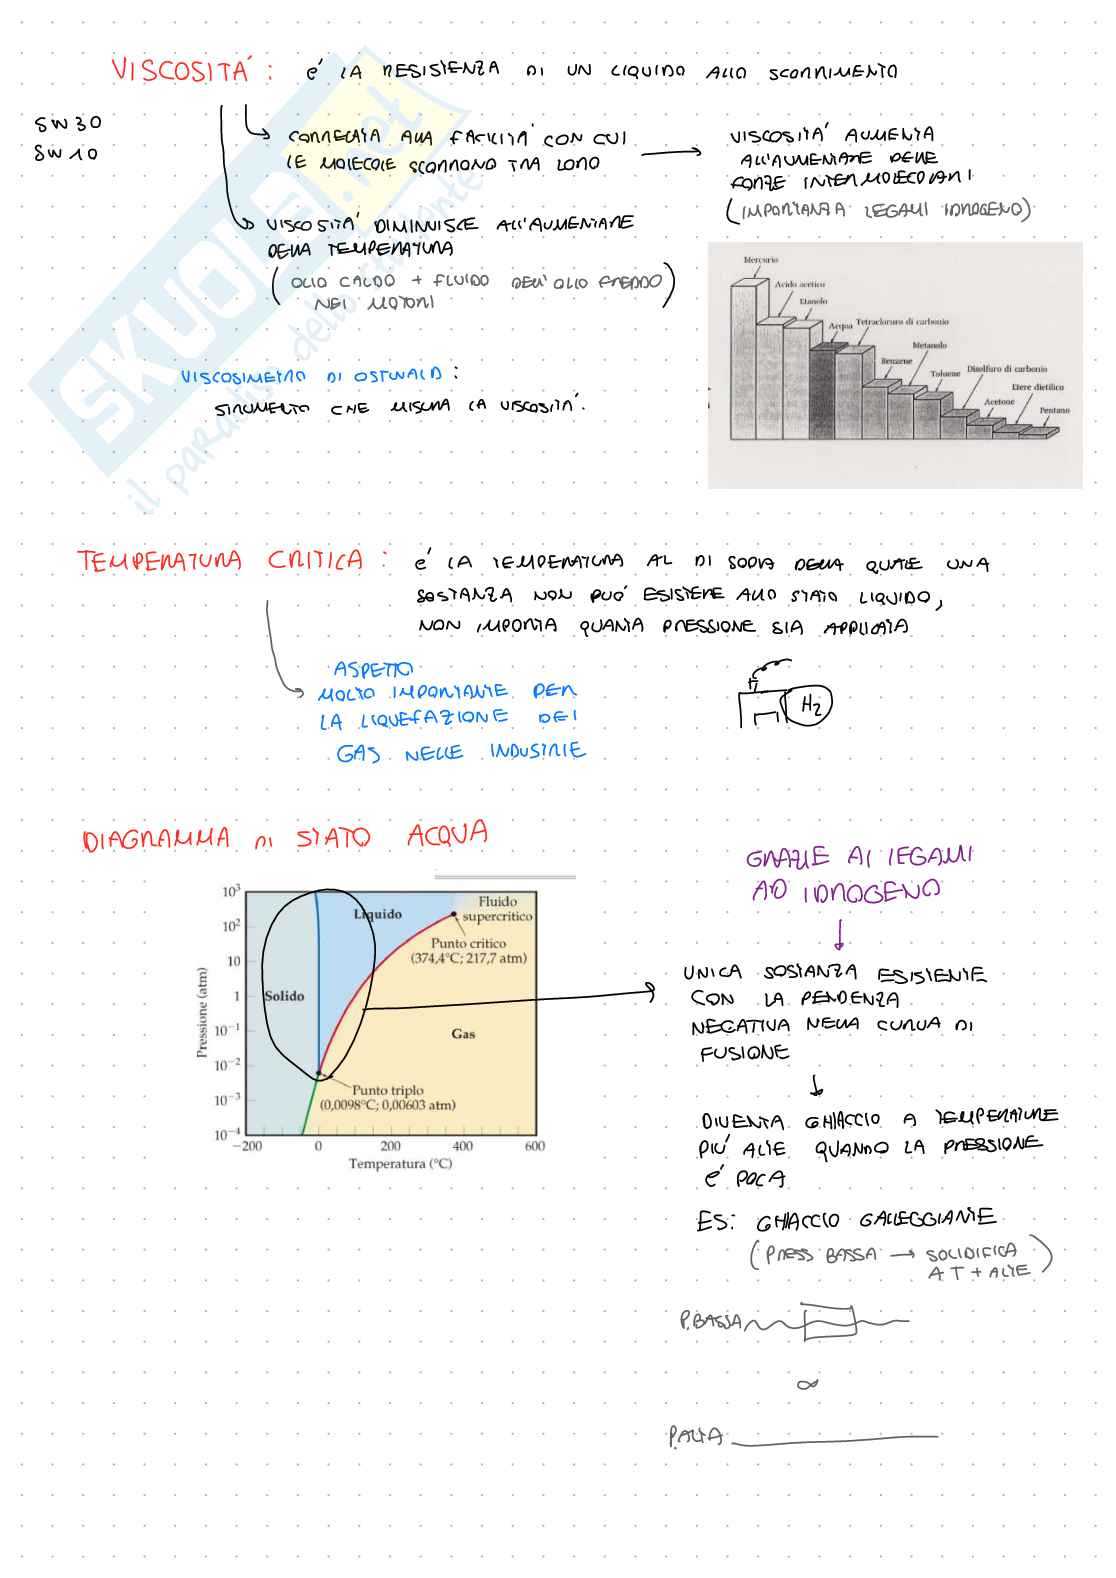 VISCOSITÀ : É LA RESISTENZA DI UN LIQUIDO ALLO SCORRIMENTO
SW30
SW10
CORRELATA ALLA FACILITÀ CON CUI
LE MOLECOLE SCORRONO TRA LORO
VISCOSITÀ AUMENTA
ALL'AUMENTARE DELLE
FORZE INTERMOLECOLARI
(IMPORTANZA LEGAMI IDROGENO)
VISCOSITÀ DIMINUISCE ALL'AUMENTARE
DELLA TEMPERATURA
(OLIO CALDO + FLUIDO DELL'OLIO FREDDO)
NEI MOTORI
Mercurio
Acido acetico
Etanolo
Acqua
Tetracloruro di carbonio
Metanolo
Benzene
Toluene
Disolfuro di carbonio
Acetone
Etere dietilico
Pentano
VISCOSIMETRO DI OSTWALD :
STRUMENTO CHE MISURA LA VISCOSITÀ.
SKUOLA.net
il paradiso dello studente
TEMPERATURA CRITICA : É LA TEMPERATURA AL DI SOPRA DELLA QUALE UNA
SOSTANZA NON PUÓ ESISTERE ALLO STATO LIQUIDO,
NON IMPORTA QUANTA PRESSIONE SIA APPLICATA
ASPETTO
MOLTO IMPORTANTE PER
LA LIQUEFAZIONE DEI
GAS NELLE INDUSTRIE
H2
DIAGRAMMA DI STATO ACQUA
Pressione (atm)
10³
10²
10
1
10⁻¹
10⁻²
10⁻³
10⁻⁴
Liquido
Fluido
supercritico
Punto critico
(374,4°C; 217,7 atm)
Solido
Gas
Punto triplo
(0,0098°C; 0,00603 atm)
−200 0 200 400 600
Temperatura (°C)
GRAZIE AI LEGAMI
AD IDROGENO
UNICA SOSTANZA ESISTENTE
CON LA PENDENZA
NEGATIVA NELLA CURVA DI
FUSIONE
DIVENTA GHIACCIO A TEMPERATURE
PIÚ ALTE QUANDO LA PRESSIONE
É POCA
ES: GHIACCIO GALLEGGIANTE
(PRESS BASSA → SOLIDIFICA
A T + ALTE)
P.BASSA
∝
P.ALTA